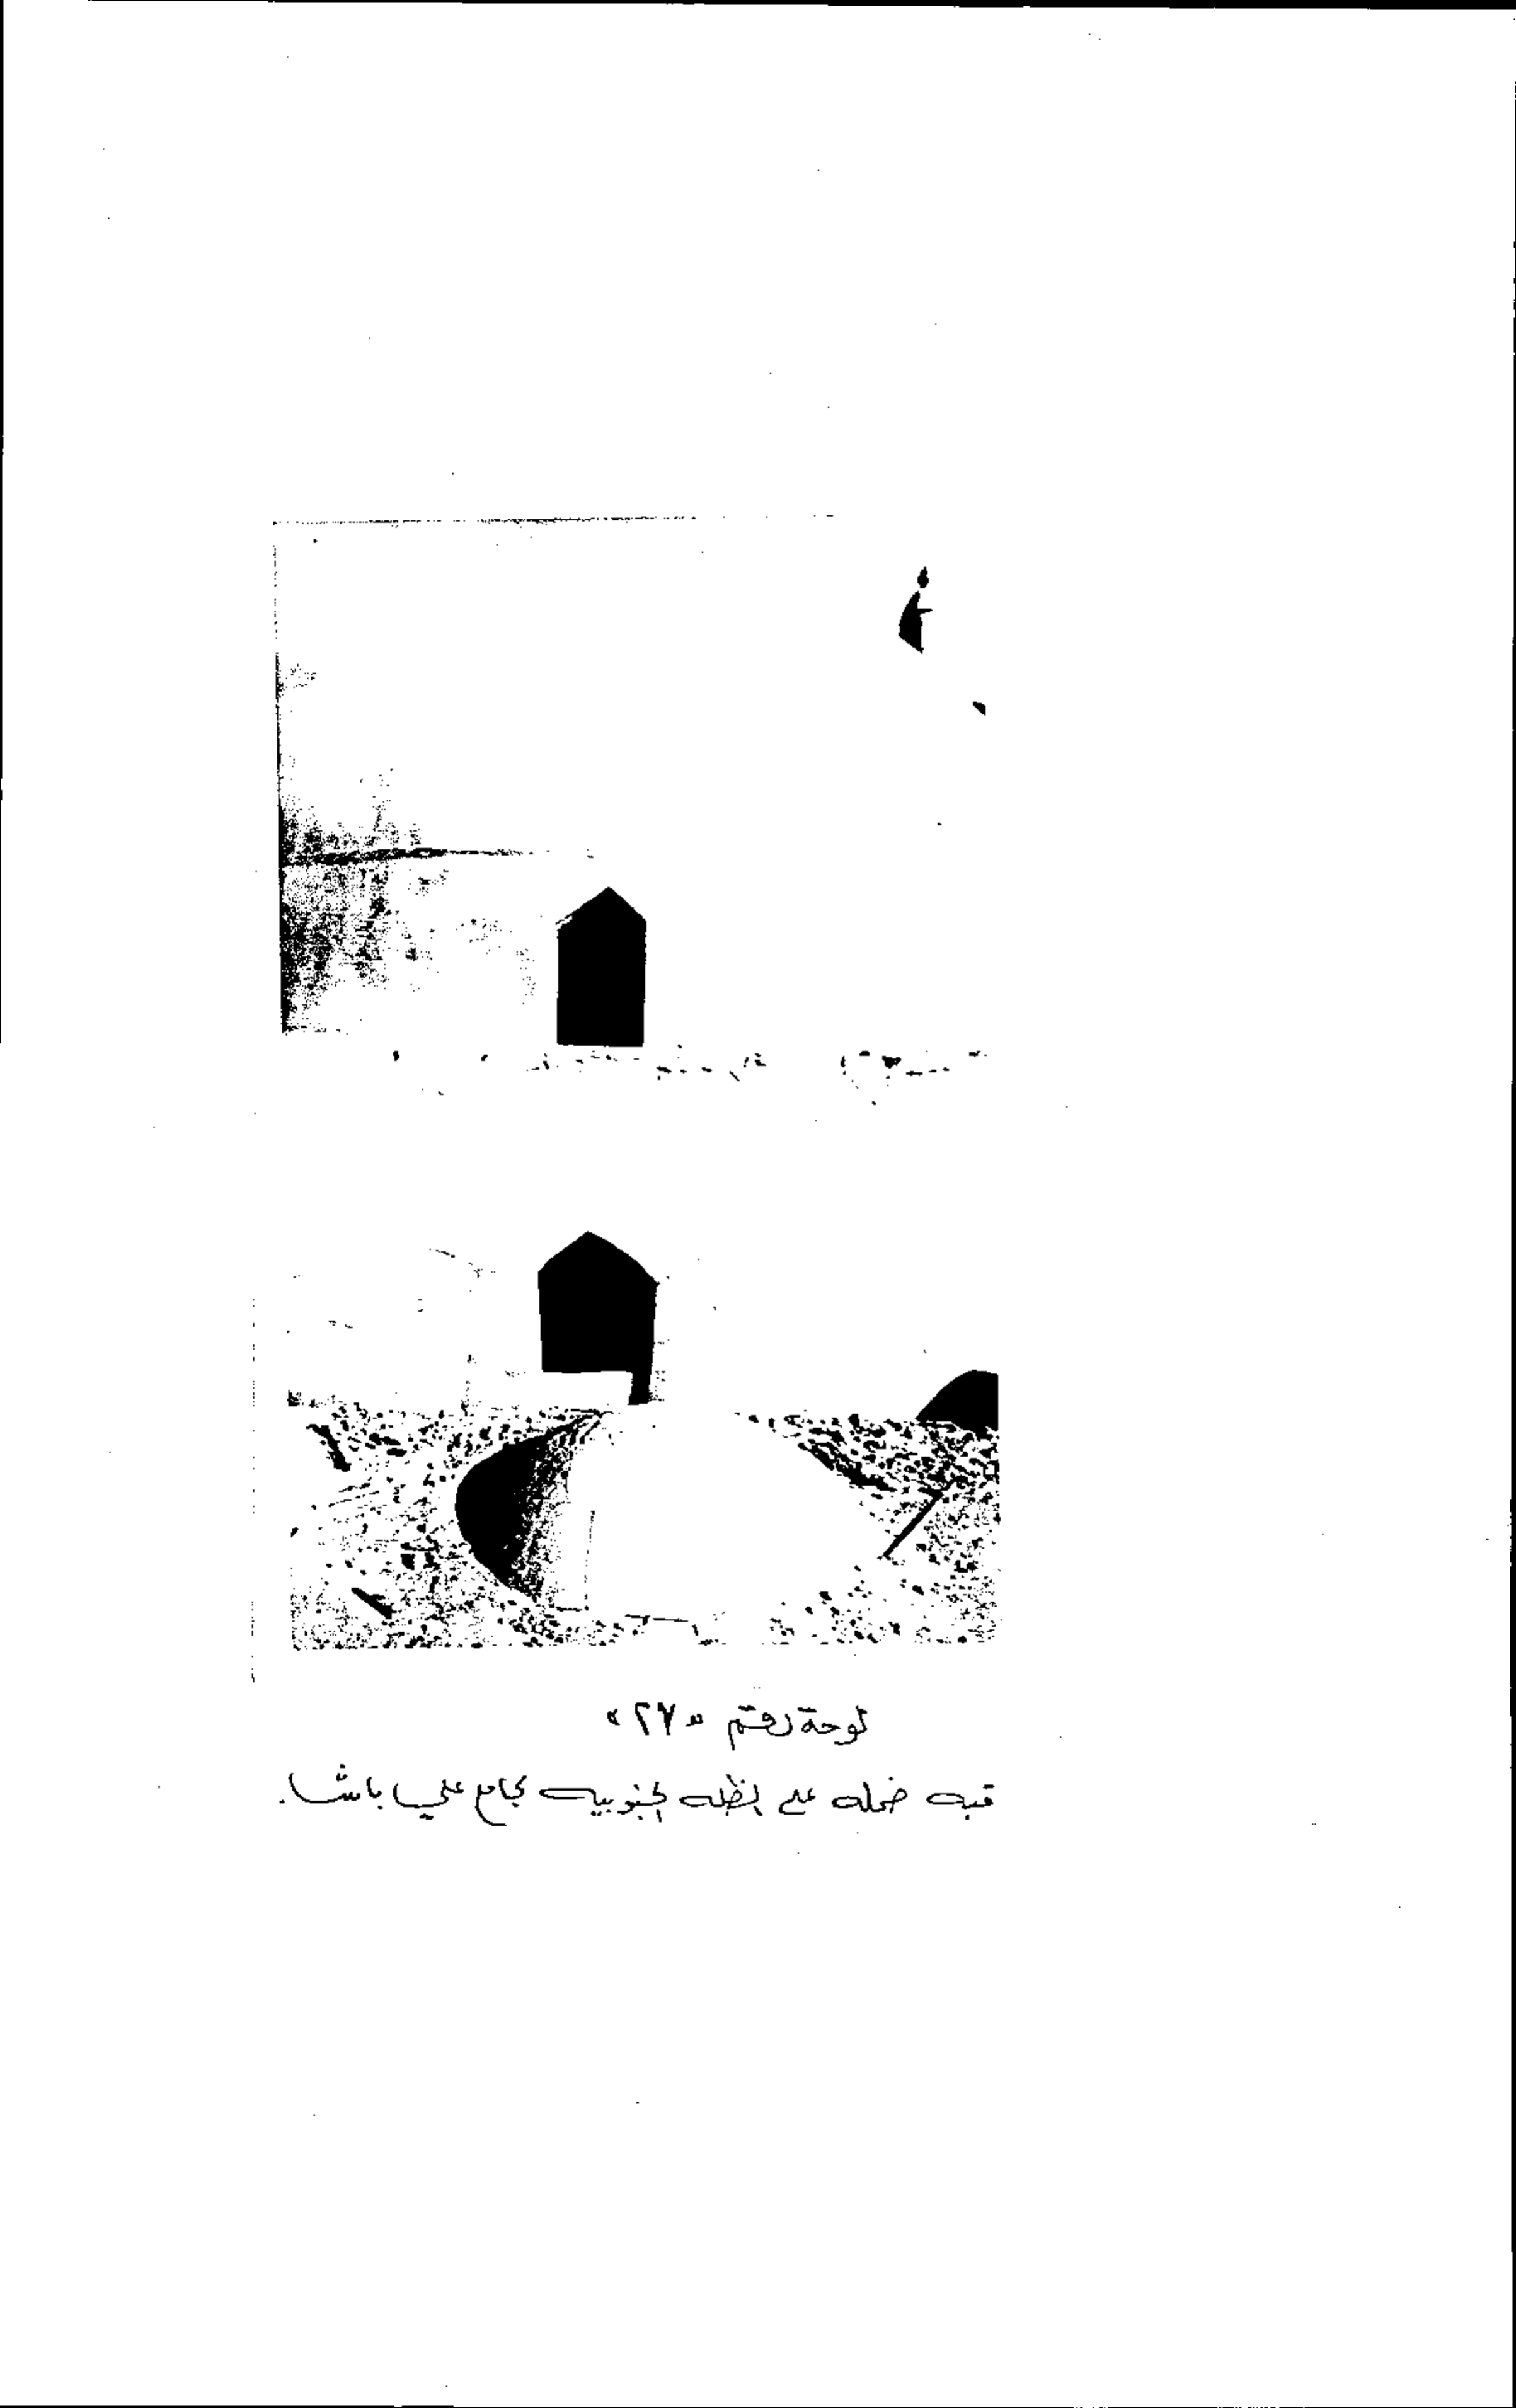 لوحة رقم «٢٧»
قبه ضحله على الظله الجنوبيه بجامع علي باشا.